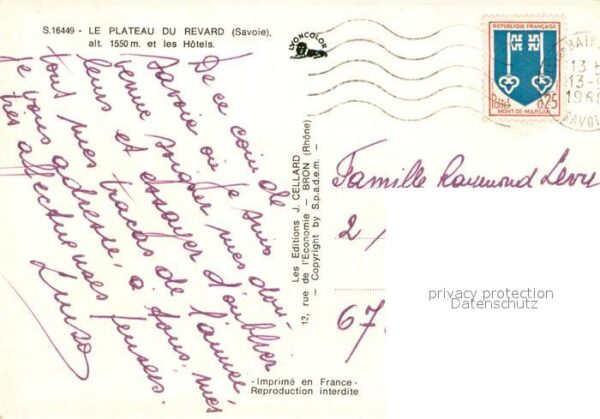 S.16449 - LE PLATEAU DU REVARD (Savoie),
alt. 1550 m. et les Hôtels.
De ce coin de
Savoie où je suis
venue soigner mes dou-
leurs et essayer d'oublier
tout mes tracas de l'année
je vous adresse, à tous, mes
très affectueuses pensées.
LYONCOLOR
Les Editions J. CELLARD
13, rue de l'Economie - BRON (Rhône)
Copyright by S.p.a.d.e.m.
-Imprimé en France-
Reproduction interdite
REPUBLIQUE FRANÇAISE
POSTES 0,25
MONT-DE-MARSAN
13
13
196
SAVOIE
Famille Raymond
2
67
privacy protection
Datenschutz